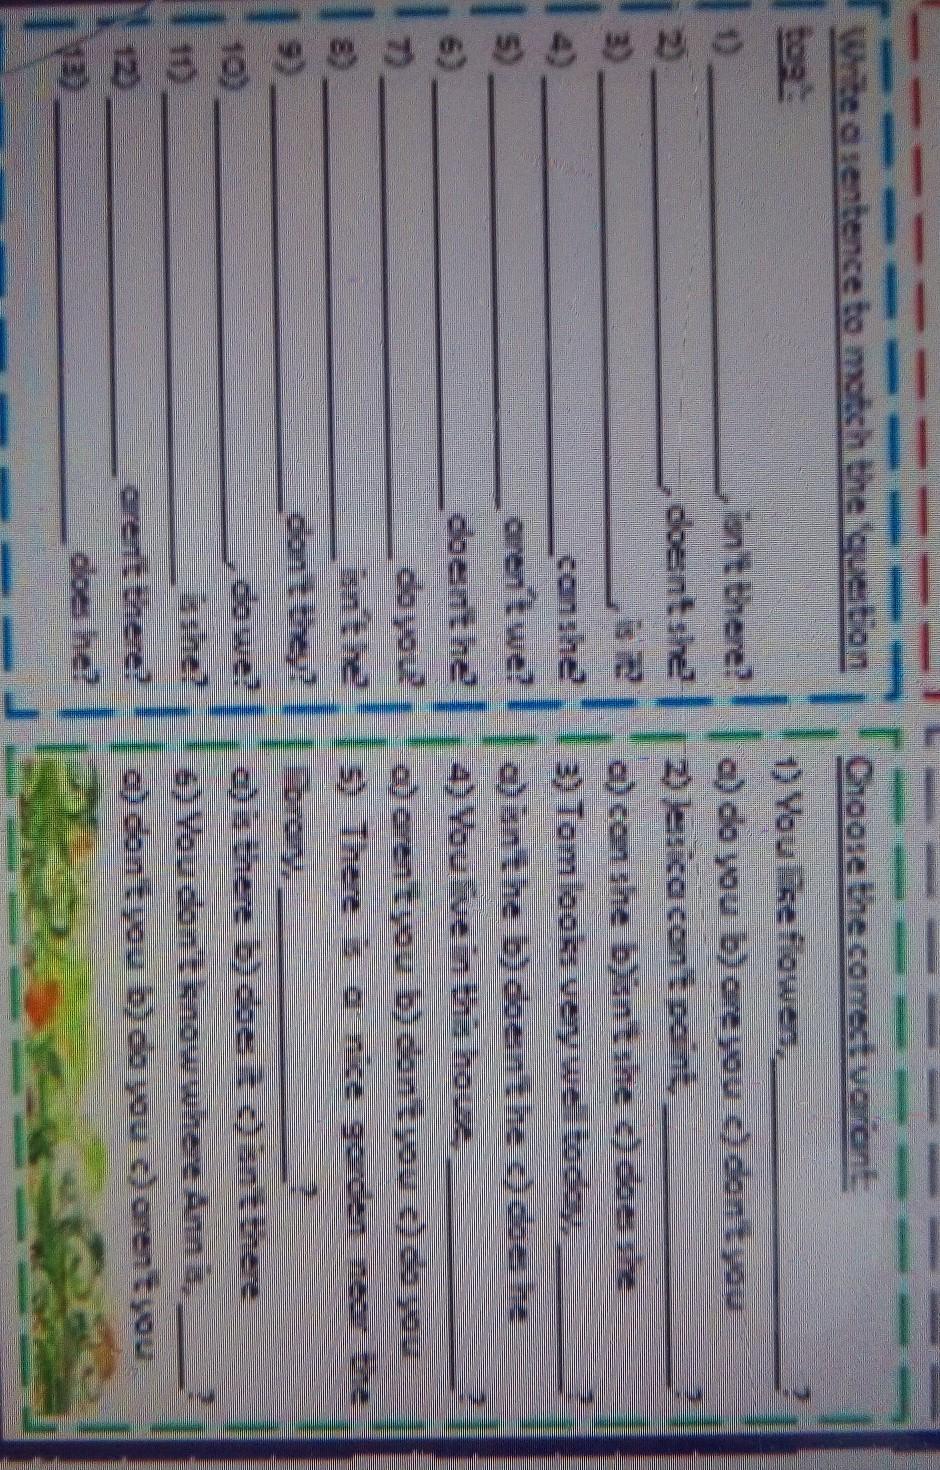 Write a sentence to match the "question
tag":
1) ____________, isn't there?
2) ____________, doesn't she?
3) ____________, is it?
4) ____________ can she?
5) ____________ aren't we?
6) ____________ doesn't he?
7) ____________ do you?
8) ____________ isn't he?
9) ____________ don't they?
10) ____________, do we?
11) ____________ is she?
12) ____________ aren't there?
13) ____________ does he?
Choose the correct variant
1) You like flowers, ____________?
a) do you b) are you c) don't you
2) Jessica can't paint, ____________?
a) can she b) isn't she c) does she
3) Tom looks very well today, ____________?
a) isn't he b) doesn't he c) does he
4) You live in this house, ____________?
a) aren't you b) don't you c) do you
5) There is a nice garden near the
library, ____________?
a) is there b) does it c) isn't there
6) You don't know where Ann is, ____?
a) don't you b) do you c) aren't you